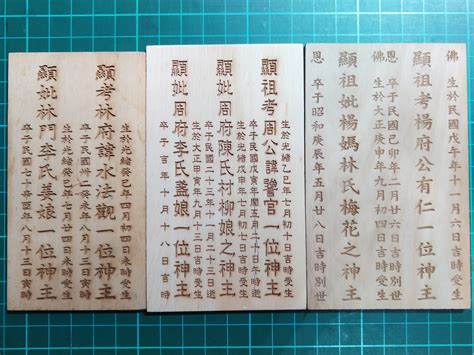 生於光緒癸巳年四月初四日未時受生
顯考林府諱水法觀一位神主
卒于民國 癸未年八月十三日
顯妣林門李氏姜娘一位神主
卒于民國七十 年八月十三日寅時
生於光緒乙巳年七月初十日吉時受生
顯祖考周公諱 官一位神主
卒于民國 年閏五月二十日午時逝
生於光緒戊申年七月初八日吉時受生
顯妣周府陳氏村柳娘之神主
卒于民國二十 年九月 三日
生於大正甲寅年九月十三日吉時受生
顯妣周府李氏蓋娘一位神主
卒于吉年十月十八日吉時
佛 生於民國戊午年十一月六日吉時受生
顯祖考楊府公有仁一位神主
卒于民國癸卯年二月廿六日吉時別世
佛 生於大正庚申年九月初四日吉時受生
顯祖妣楊媽林氏梅花之神主
恩 卒于昭和庚辰年五月廿八日吉時別世